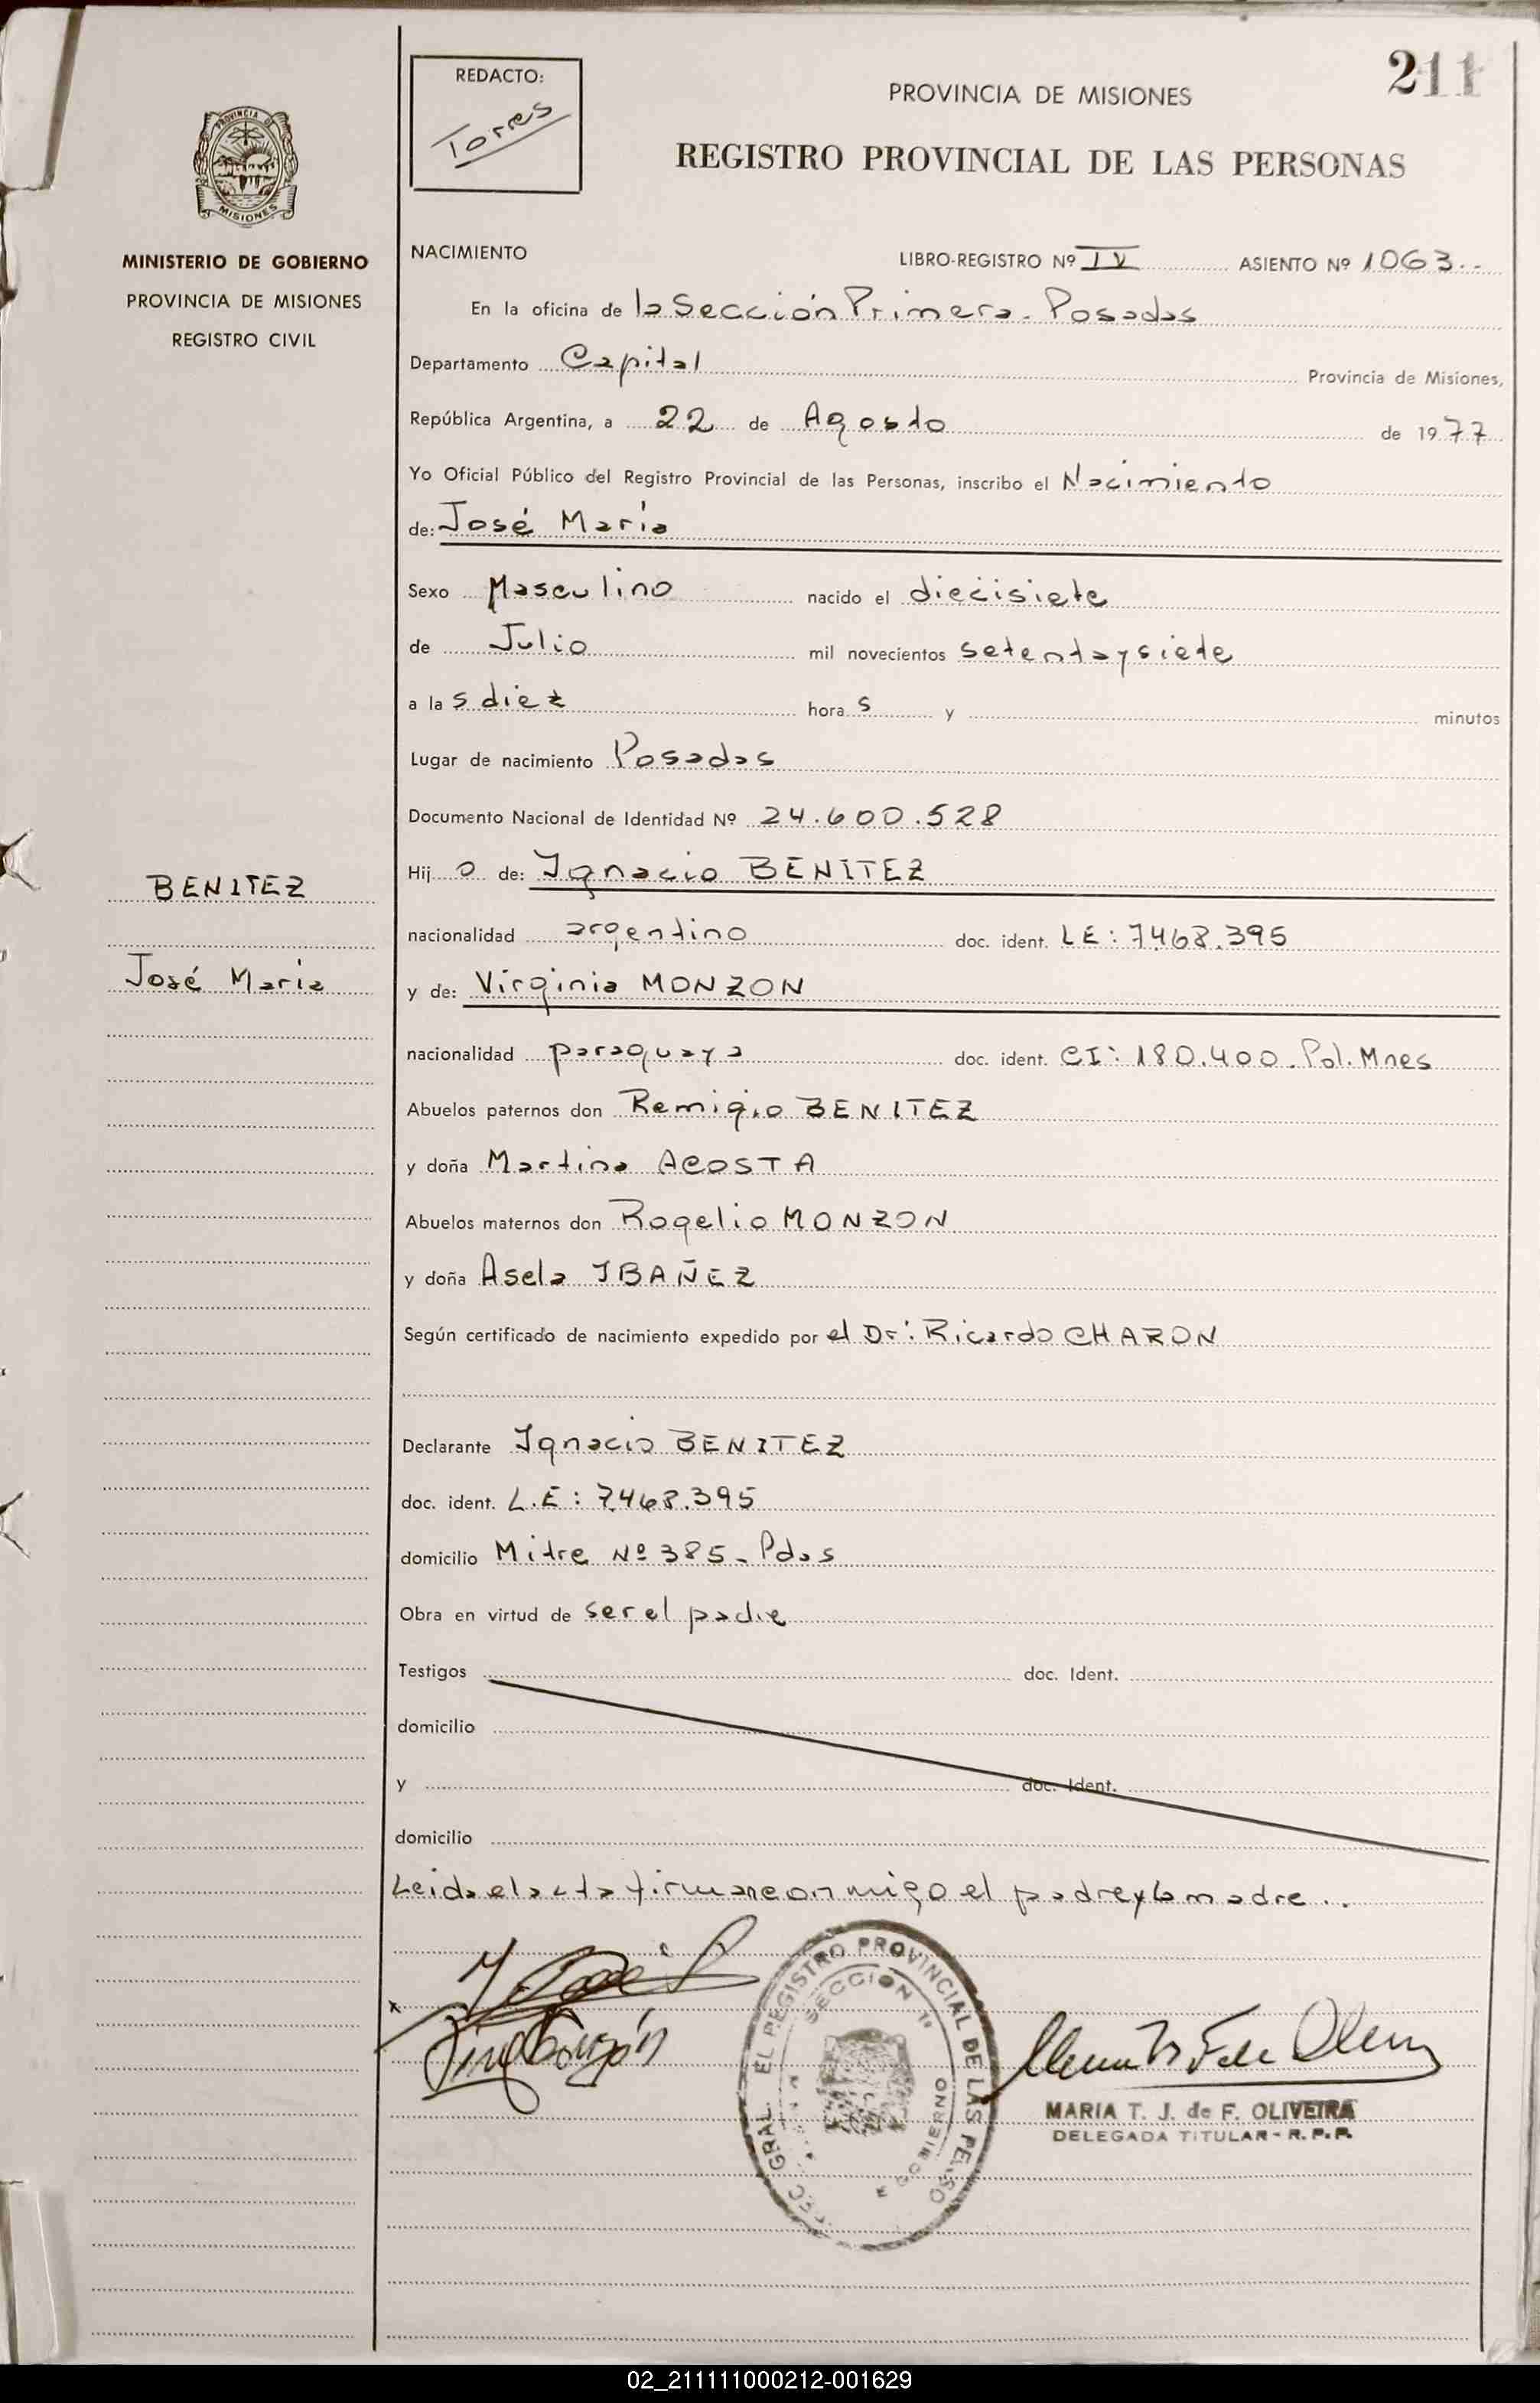 211
REDACTO:
Torres
PROVINCIA DE MISIONES
REGISTRO PROVINCIAL DE LAS PERSONAS
PROVINCIA D
MISIONES
MINISTERIO DE GOBIERNO
PROVINCIA DE MISIONES
REGISTRO CIVIL
NACIMIENTO LIBRO-REGISTRO Nº IV ASIENTO Nº 1063.-
En la oficina de la Sección Primera - Posadas
Departamento Capital Provincia de Misiones,
República Argentina, a 22 de Agosto de 1977
Yo Oficial Público del Registro Provincial de las Personas, inscribo el Nacimiento
de: José María
Sexo Masculino nacido el diecisiete
de Julio mil novecientos setenta y siete
a las diez horas y minutos
Lugar de nacimiento Posadas
Documento Nacional de Identidad Nº 24.600.528
Hijo de: Ignacio BENITEZ
BENITEZ
nacionalidad argentino doc. ident. LE: 7.468.395
José María
y de: Virginia MONZON
nacionalidad paraguaya doc. ident. CI: 180.400. Pol. Mnes
Abuelos paternos don Remigio BENITEZ
y doña Martina ACOSTA
Abuelos maternos don Rogelio MONZON
y doña Asela IBAÑEZ
Según certificado de nacimiento expedido por el Dr: Ricardo CHARON
Declarante Ignacio BENITEZ
doc. ident. L.E: 7.468.395
domicilio Mitre Nº 385 - Pdas
Obra en virtud de ser el padre
Testigos doc. Ident.
domicilio
y doc. Ident.
domicilio
Leida el acta firman conmigo el padre y la madre.
GRAL. EL REGISTRO PROVINCIAL DE LAS PERSO
SECCION 1ª
GOBIERNO
MARIA T. J. de F. OLIVEIRA
DELEGADA TITULAR - R. P. P.
02_211111000212-001629